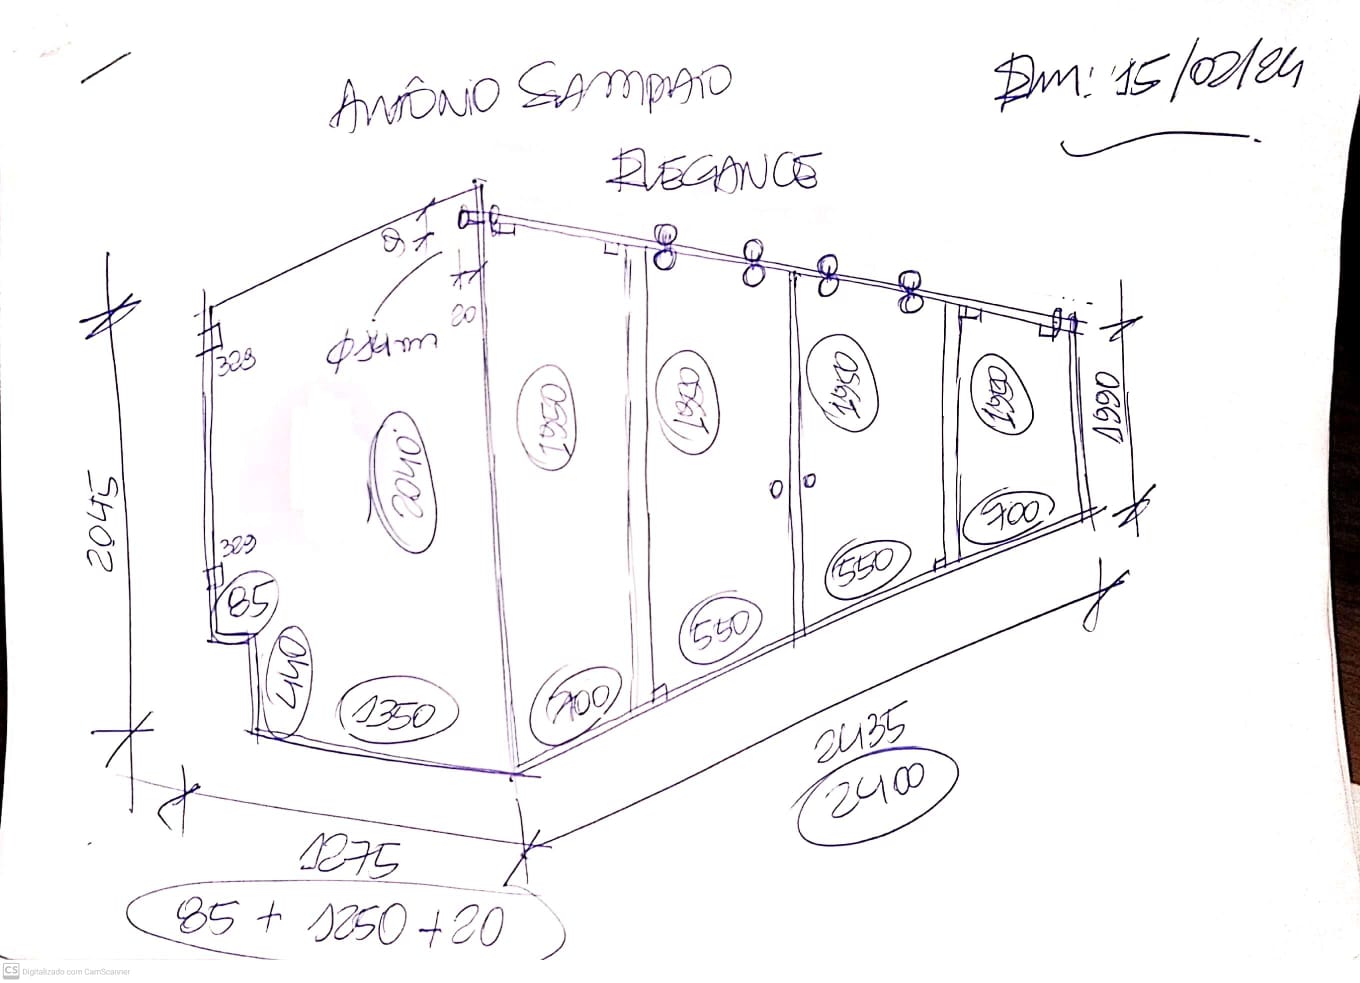 ANTÔNIO SAMPAIO
EM: 15/02/24
ELEGANCE
20
329
Ø14mm
2040
1950
1950
1950
1950
1990
2045
329
85
440
1350
700
550
550
700
2435
2400
1275
85 + 1250 + 20
CS Digitalizado com CamScanner